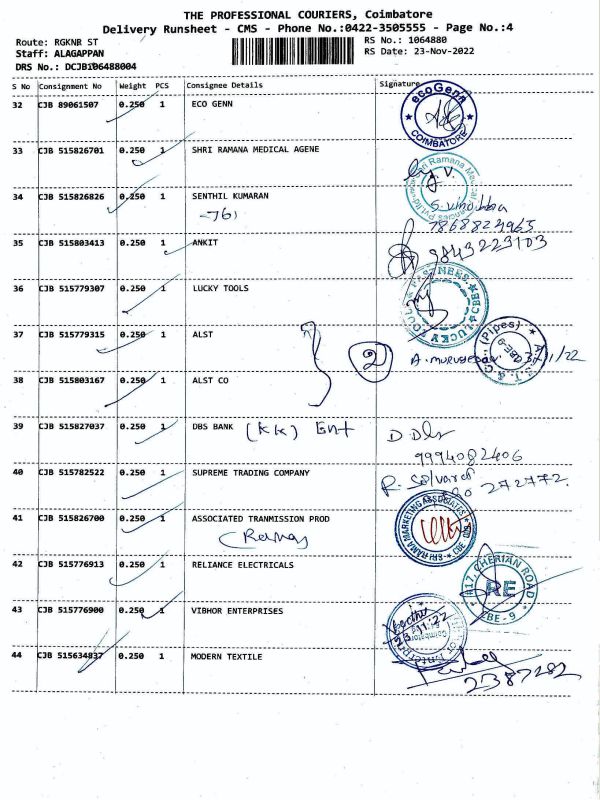 THE PROFESSIONAL COURIERS, Coimbatore
Delivery Runsheet - CMS - Phone No.:0422-3505555 - Page No.:4
Route: RGKNR ST
Staff: ALAGAPPAN
DRS No.: DCJB106488004
RS No.: 1064880
RS Date: 23-Nov-2022
S No Consignment No Weight PCS Consignee Details Signature
32 CJB 89061507 0.250 1 ECO GENN
ecoGenn COIMBATORE
33 CJB 515826701 0.250 1 SHRI RAMANA MEDICAL AGENE
34 CJB 515826826 0.250 1 SENTHIL KUMARAN
-761
7868824965
35 CJB 515803413 0.250 1 ANKIT
9843223103
36 CJB 515779307 0.250 1 LUCKY TOOLS
37 CJB 515779315 0.250 1 ALST
2
38 CJB 515803167 0.250 1 ALST CO
39 CJB 515827037 0.250 1 DBS BANK (KK) Ent
9994082406
40 CJB 515782522 0.250 1 SUPREME TRADING COMPANY
272772
41 CJB 515826700 0.250 1 ASSOCIATED TRANMISSION PROD
SRI RAMA MARKETING ASSOCIATES
42 CJB 515776913 0.250 1 RELIANCE ELECTRICALS
CHERIAN ROAD
RE
CBE - 9
43 CJB 515776900 0.250 1 VIBHOR ENTERPRISES
44 CJB 515634837 0.250 1 MODERN TEXTILE
2387282